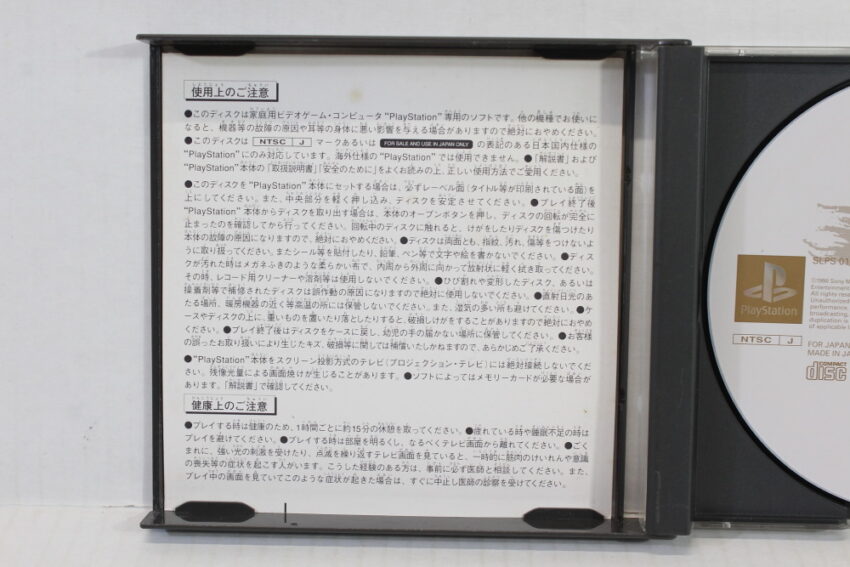 使用上のご注意
●このディスクは家庭用ビデオゲーム・コンピュータ"PlayStation"専用のソフトです。他の機種でお使いに
なると、機器等の故障の原因や耳等の身体に悪い影響を与える場合がありますので絶対におやめください。
●このディスクは NTSC J マークあるいは FOR SALE AND USE IN JAPAN ONLY の表記のある日本国内仕様の
"PlayStation"にのみ対応しています。海外仕様の"PlayStation"では使用できません。●「解説書」および
"PlayStation"本体の「取扱説明書」「安全のために」をよくお読みの上、正しい使用方法でご愛用ください。
●このディスクを"PlayStation"本体にセットする場合は、必ずレーベル面(タイトル等が印刷されている面)を
上にしてください。また、中央部分を軽く押し込み、ディスクを安定させてください。●プレイ終了後
"PlayStation"本体からディスクを取り出す場合は、本体のオープンボタンを押し、ディスクの回転が完全に
止まったのを確認してから行ってください。回転中のディスクに触れると、けがをしたりディスクを傷つけたり
本体の故障の原因になりますので、絶対におやめください。●ディスクは両面とも、指紋、汚れ、傷等をつけないよ
うに取り扱ってください。またシール等を貼付したり、鉛筆、ペン等で文字や絵を書かないでください。●ディス
クが汚れた時はメガネふきのような柔らかい布で、内周から外周に向かって放射状に軽く拭き取ってください。
その時、レコード用クリーナーや溶剤等は使用しないでください。●ひび割れや変形したディスク、あるいは
接着剤等で補修されたディスクは誤作動の原因になりますので絶対に使用しないでください。●直射日光のあ
たる場所、暖房機器の近く等高温の所には保管しないでください。また、湿気の多い所も避けてください。●ケ
ースやディスクの上に、重いものを置いたり落としたりすると、破損しけがをすることがありますので絶対におやめ
ください。●プレイ終了後はディスクをケースに戻し、幼児の手の届かない場所に保管してください。●お客様
の誤ったお取り扱いにより生じたキズ、破損等に関しては補償いたしかねますので、あらかじめご了承ください。
●"PlayStation"本体をスクリーン投影方式のテレビ(プロジェクション・テレビ)には絶対接続しないでくだ
さい。残像光量による画面焼けが生じることがあります。●ソフトによってはメモリーカードが必要な場合が
あります。「解説書」で確認してください。
健康上のご注意
●プレイする時は健康のため、1時間ごとに約15分の休憩を取ってください。●疲れている時や睡眠不足の時は
プレイを避けてください。●プレイする時は部屋を明るくし、なるべくテレビ画面から離れてください。●ごく
まれに、強い光の刺激を受けたり、点滅を繰り返すテレビ画面を見ていると、一時的に筋肉のけいれんや意識
の喪失等の症状を起こす人がいます。こうした経験のある方は、事前に必ず医師と相談してください。また、
プレイ中の画面を見ていてこのような症状が起きた場合は、すぐに中止し医師の診察を受けてください。
SLPS 01
Sony
Entertainment
All rights
Unauthorized
performance
broadcasting,
duplication is
of applicable
PlayStation
NTSC J
FOR JAPAN
MADE IN JA
COMPACT
disc